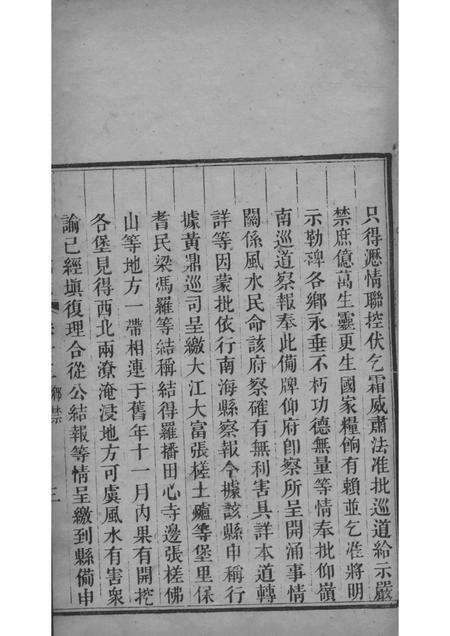 只得瀝情聯控伏乞霜威肅法准批巡道給示嚴
禁庶億萬生靈更生國家糧餉有賴並乞准將明
示勒碑各鄉永垂不朽功德無量等情奉批仰嶺
南巡道察報奉此備牌仰府卽察所呈開涌事情
關係風水民命該府察確有無利害具詳本道轉
詳等因蒙批依行南海縣察報今據該縣申稱行
據黃鼎巡司呈繳大江大富張槎土爐等堡里係
耆民梁馮羅等結稱結得羅播田心寺邊張槎佛
山等地方一帶相連于舊年十一月內果有開挖
各堡見得西北兩潦淹浸地方可虞風水有害衆
論已經塡復理合從公結報等情呈繳到縣備申
鄉禁 三